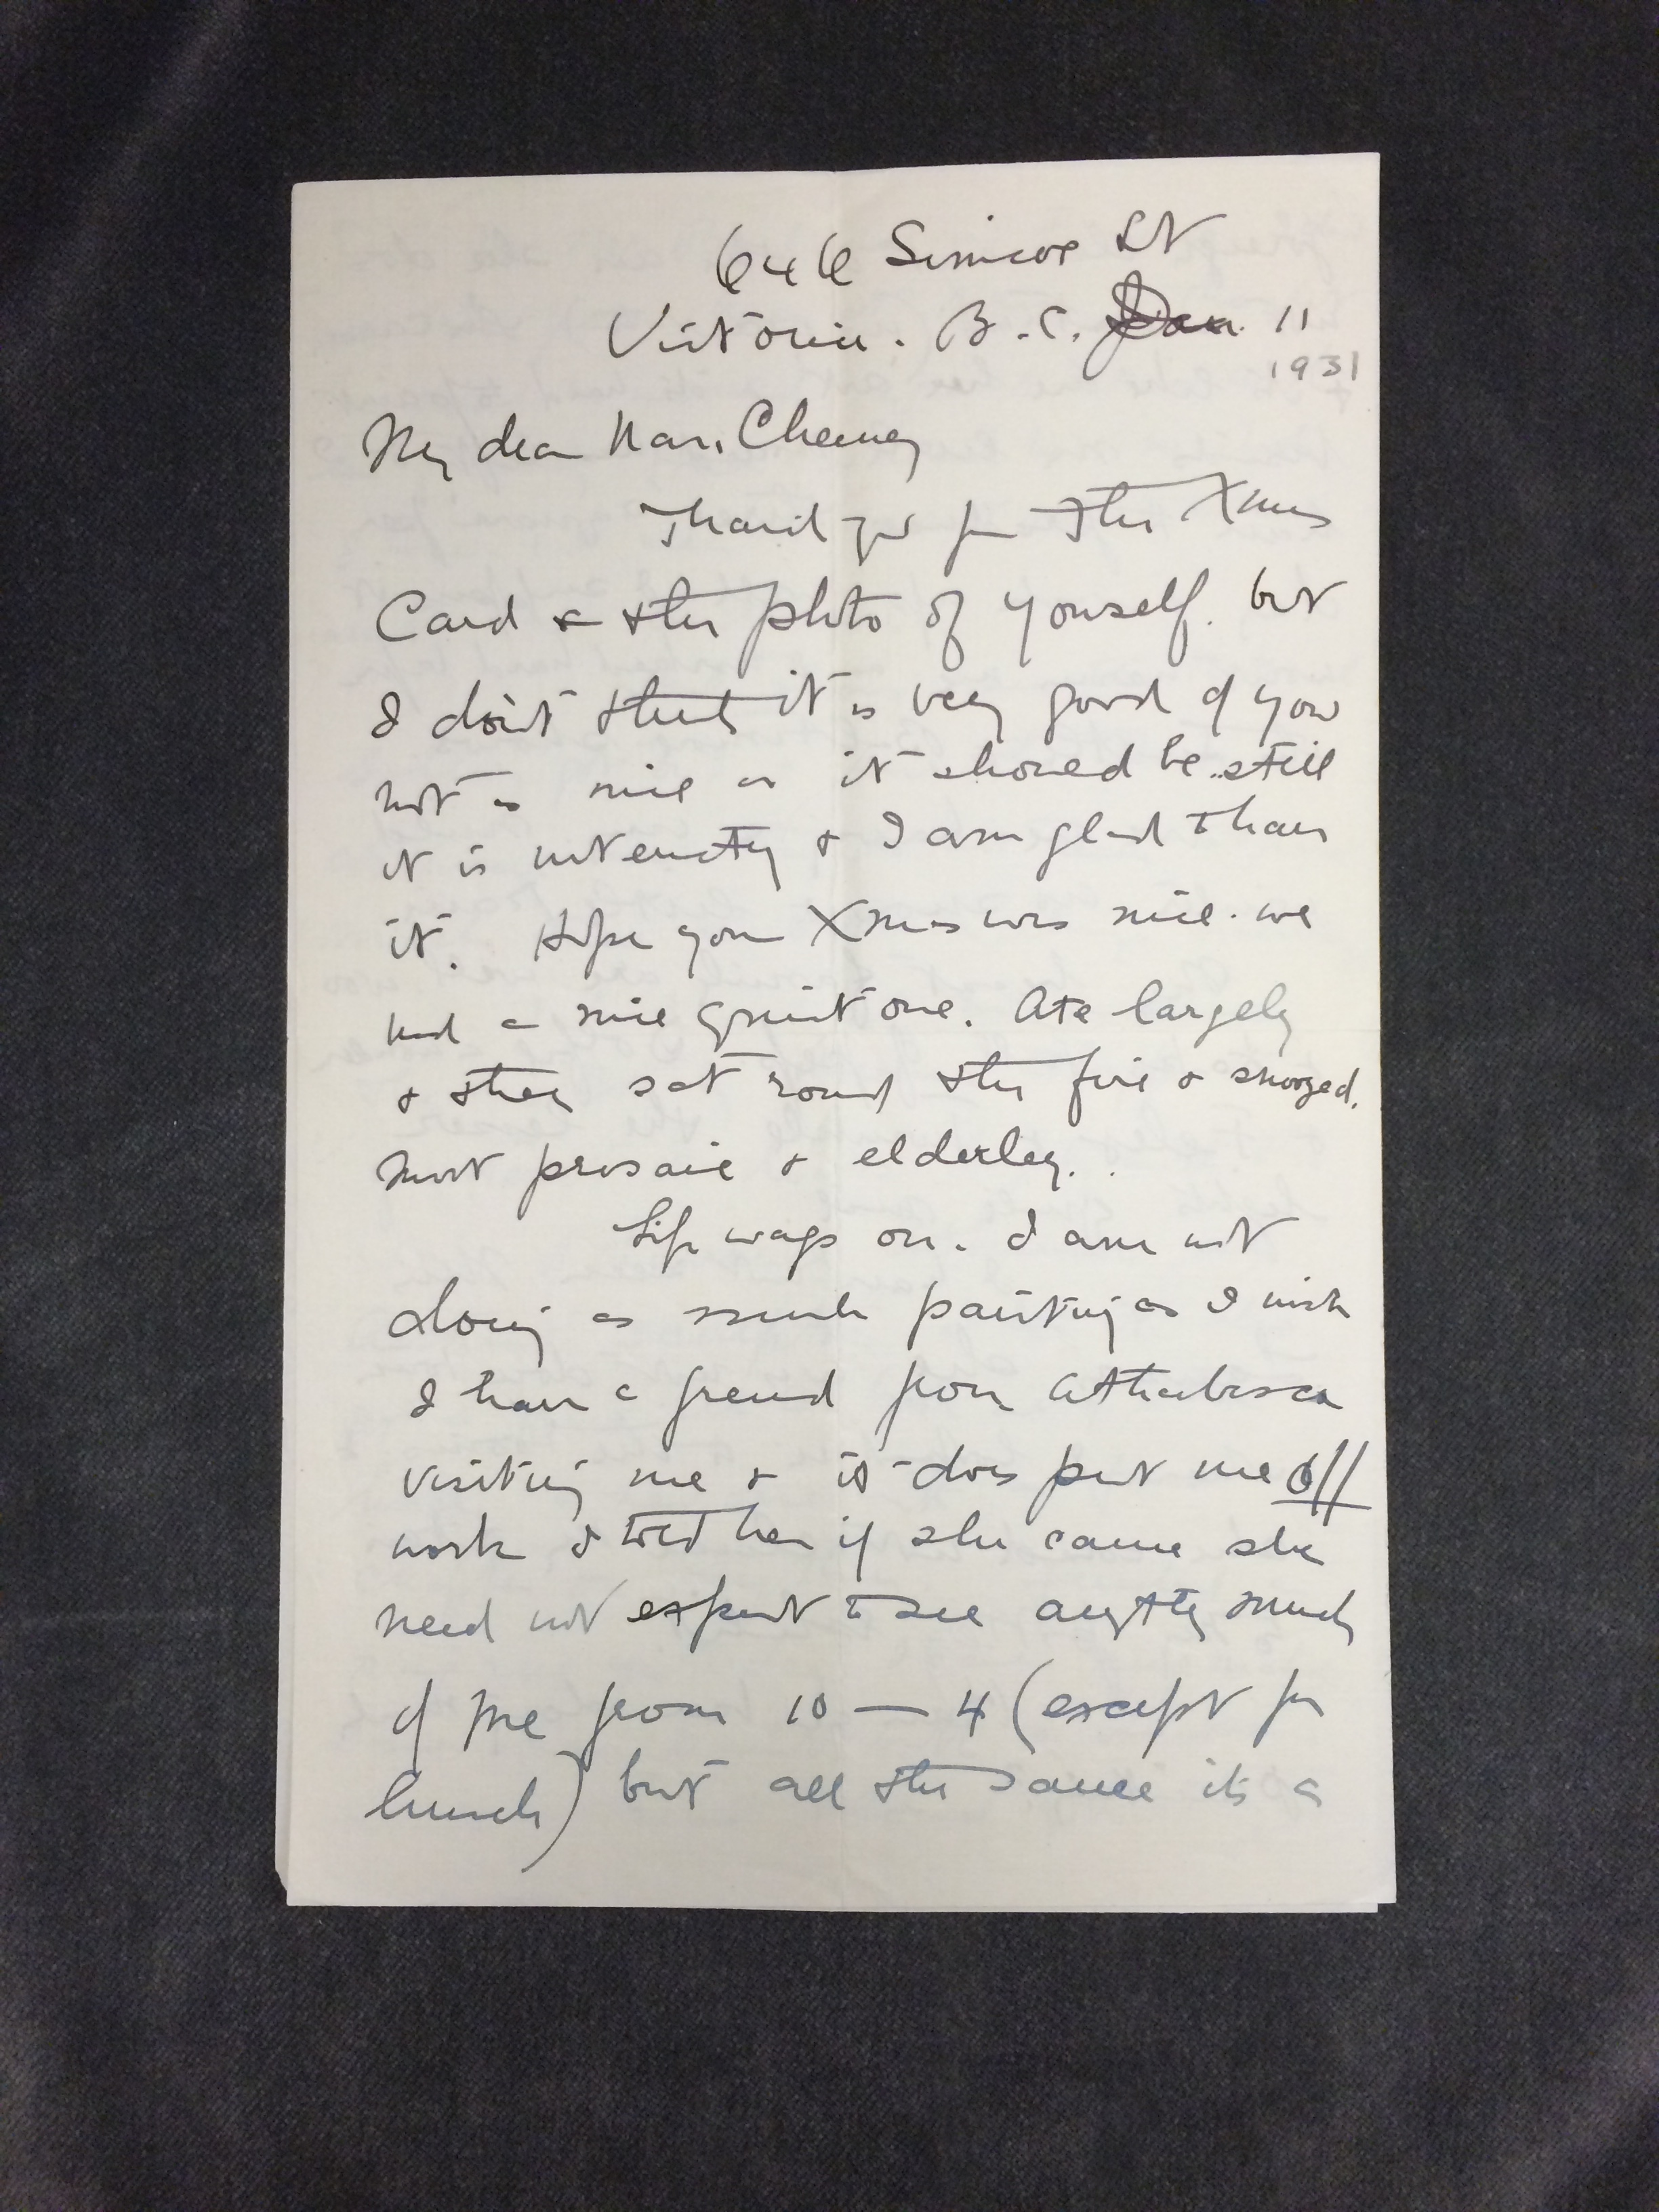 646 Simcoe St
Victoria. B.C. Jan. 11
1931
My dear Nan Cheney
Thank you for the Xmas
Card & the photo of yourself. but
I don't think it is very good of you
not as nice as it should be.. still
it is not empty & I am glad to have
it. Hope your Xmas was nice. we
had a nice quiet one. Ate largely
& then sat round the fire & snoozed.
most prosaic & elderley.
Life wags on. I am not
doing as much painting as I wish
I have a friend from Athabasca
visiting me & it does put me off
work I told her if she came she
need not expect to see anything much
of me from 10 — 4 (except for
lunch) but all the same its a